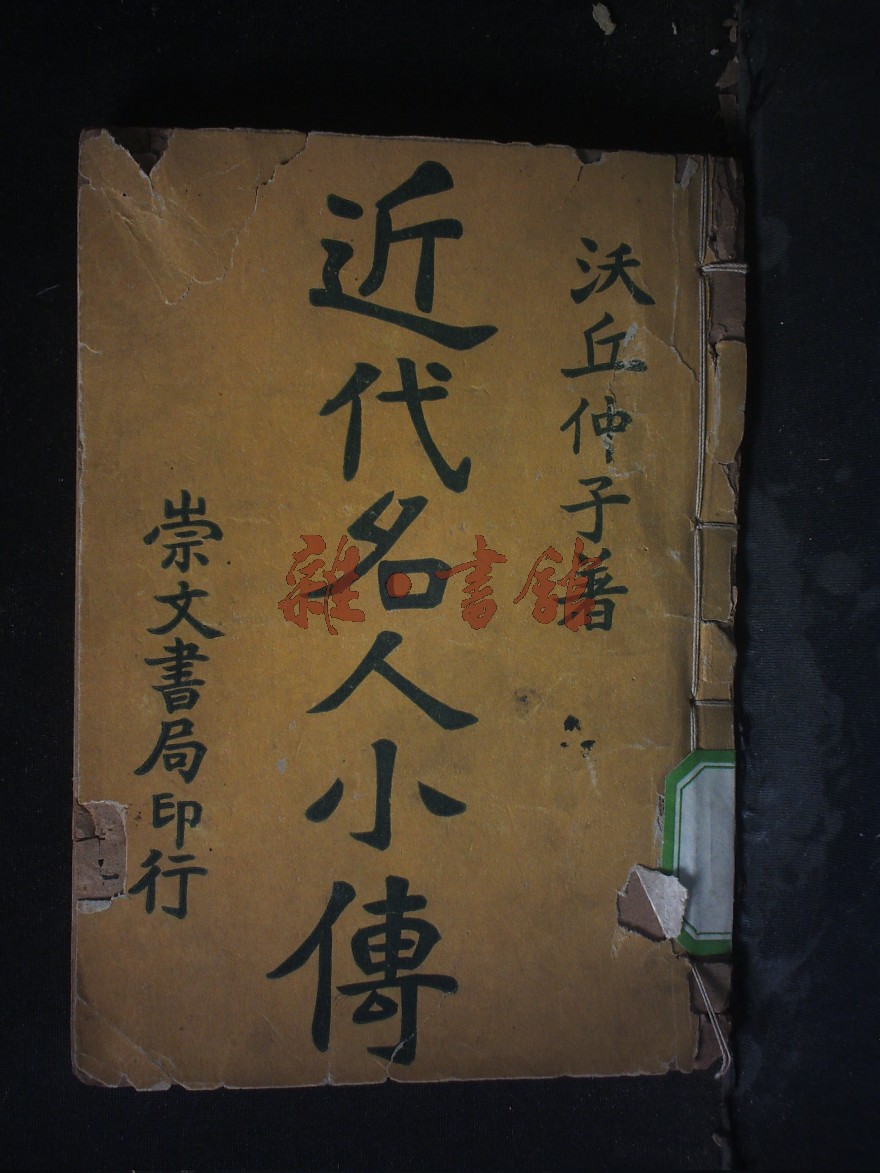 沃丘仲子著
近代名人小傳
崇文書局印行
雜·書館